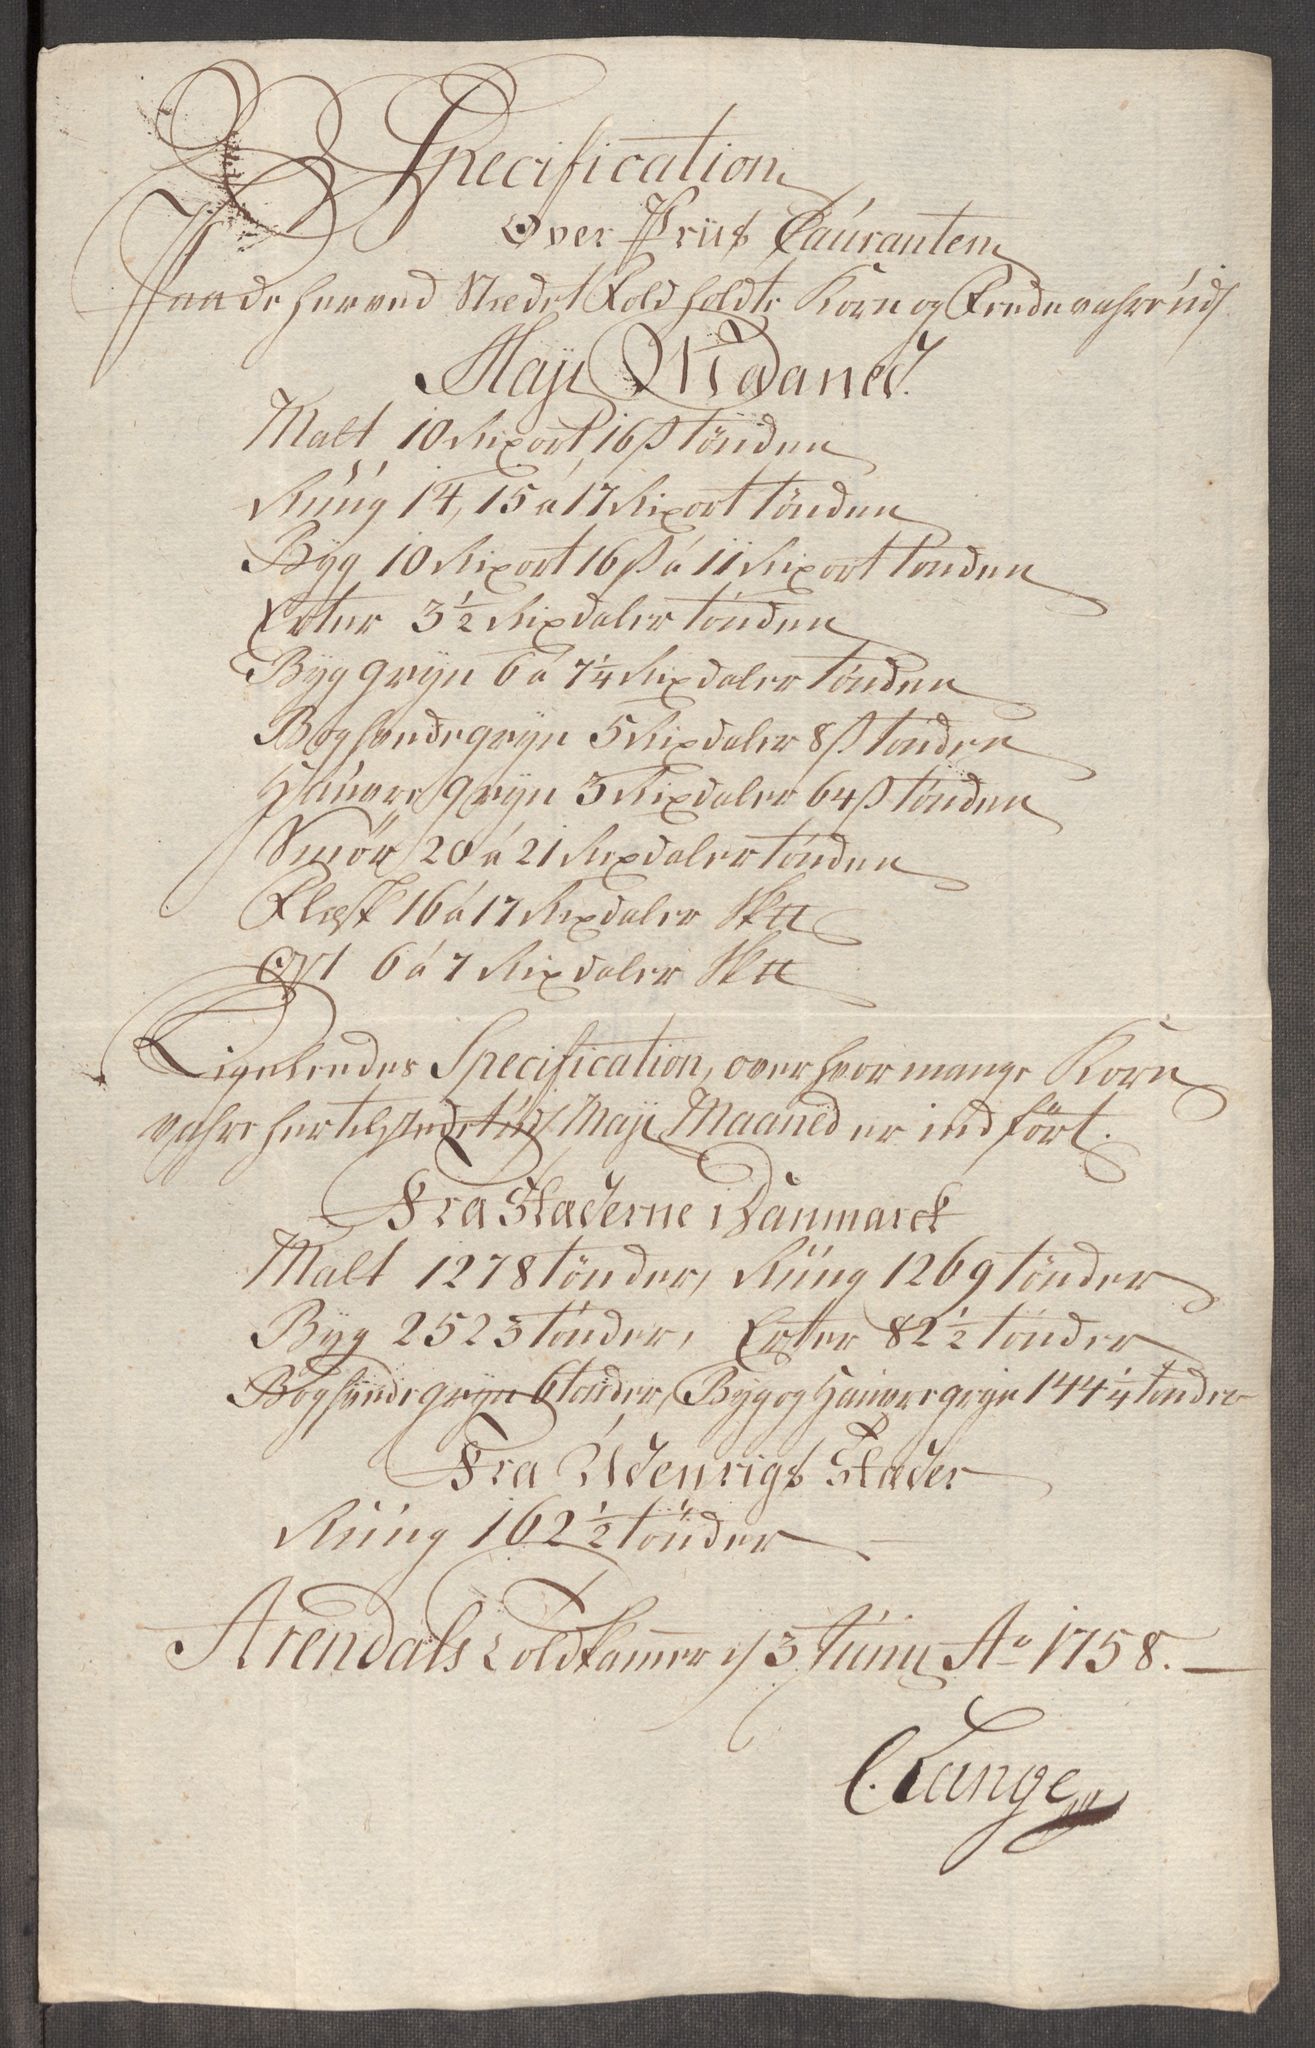 Specification
Over Priis Caúranten
Paa de her ved Stædet Fold holdte Korn og Fæde vahre úds
Maji Maaned.
Malt 10 Rixort 16 ß tönden
Rúúg 14, 15 á 17 Rixort tönden
Byg 10 Rixort 16 ß á 11 Rixort tonden
Erter 3 1/2 Rixdaler tönden
Byg gryn 6 á 7 1/4 Rixdaler tönden
Boghvede gryn 5 Rixdaler 8 ß tönden
Haúvre gryn 3 Rixdaler 64 ß tönden
Smör 20 á 21 Rixdaler tönden
Flæsk 16 á 17 Rixdaler Sk℔
Ost 6 á 7 Rixdaler Sk℔
Ligeleedes Specification, over hvor mange Korn
vahre her til stædet úds Maji Maaned er ind fört.
Fra Stæderne i Danmarck
Malt 1278 tönder, Rúúg 1269 tönder
Byg 2523 tönder, Erter 82 1/2 tönder
Boghvede gryn 6 tönder, Byg og Haúvre gryn 144 1/4 tönder
Fra Udenrigs Stæder
Rúúg 162 1/2 tönder
Arendals Toldkammer d 3 Júnii Ao 1758.
C. Lange